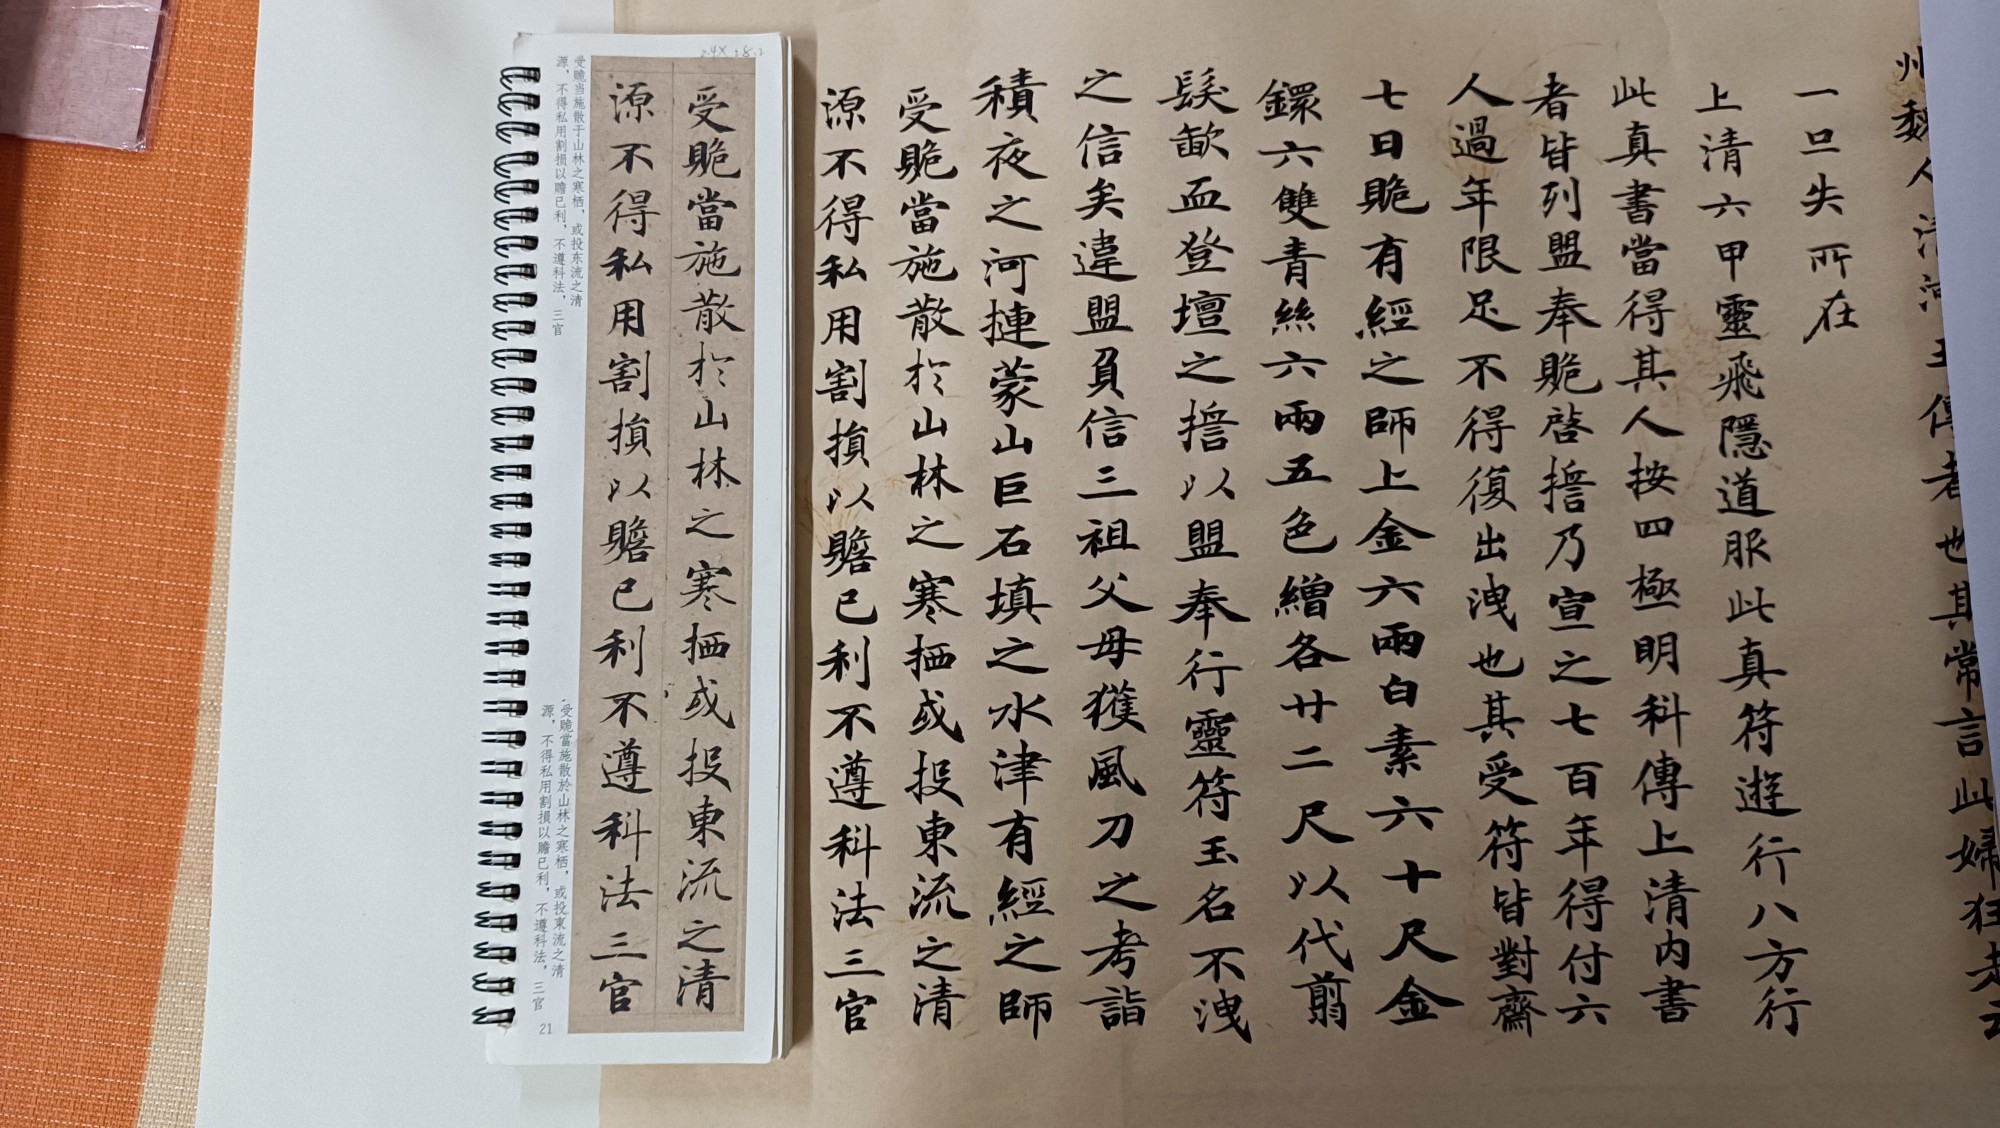 州魏人清河王傳者也其常言此婦狂走云
一旦失所在
上清六甲靈飛隱道服此真符遊行八方行
此真書當得其人按四極明科傳上清內書
者皆列盟奉賝啓擔乃宣之七百年得付六
人過年限足不得復出洩也其受符皆對齋
七日賝有經之師上金六兩白素六十尺金
鐶六雙青絲六兩五色繒各廿二尺以代翦
髮歃血登壇之擔以盟奉行靈符玉名不洩
之信矣違盟負信三祖父母獲風刀之考詣
積夜之河摙蒙山巨石填之水津有經之師
受賝當施散於山林之寒栖或投東流之清
源不得私用割損以贍己利不遵科法三官
受賝當施散於山林之寒栖或投東流之清
源不得私用割損以贍己利不遵科法三官
受赡当施散于山林之寒栖，或投东流之清
源，不得私用割损以赡己利，不遵科法，三官
受賝當施散於山林之寒栖，或投東流之清
源，不得私用割損以贍己利，不遵科法，三官
21